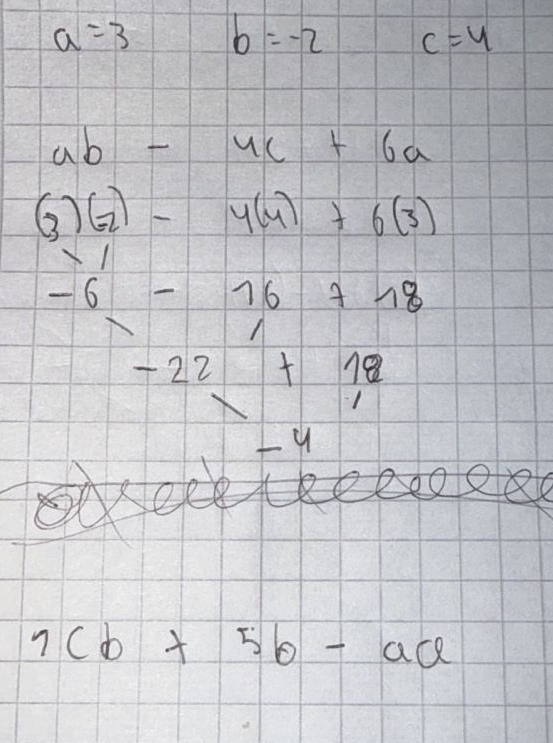 a = 3 b = -2 c = 4
ab - 4c + 6a
(3)(-2) - 4(4) + 6(3)
-6 - 16 + 18
-22 + 18
-4
1cb + 5b - aa